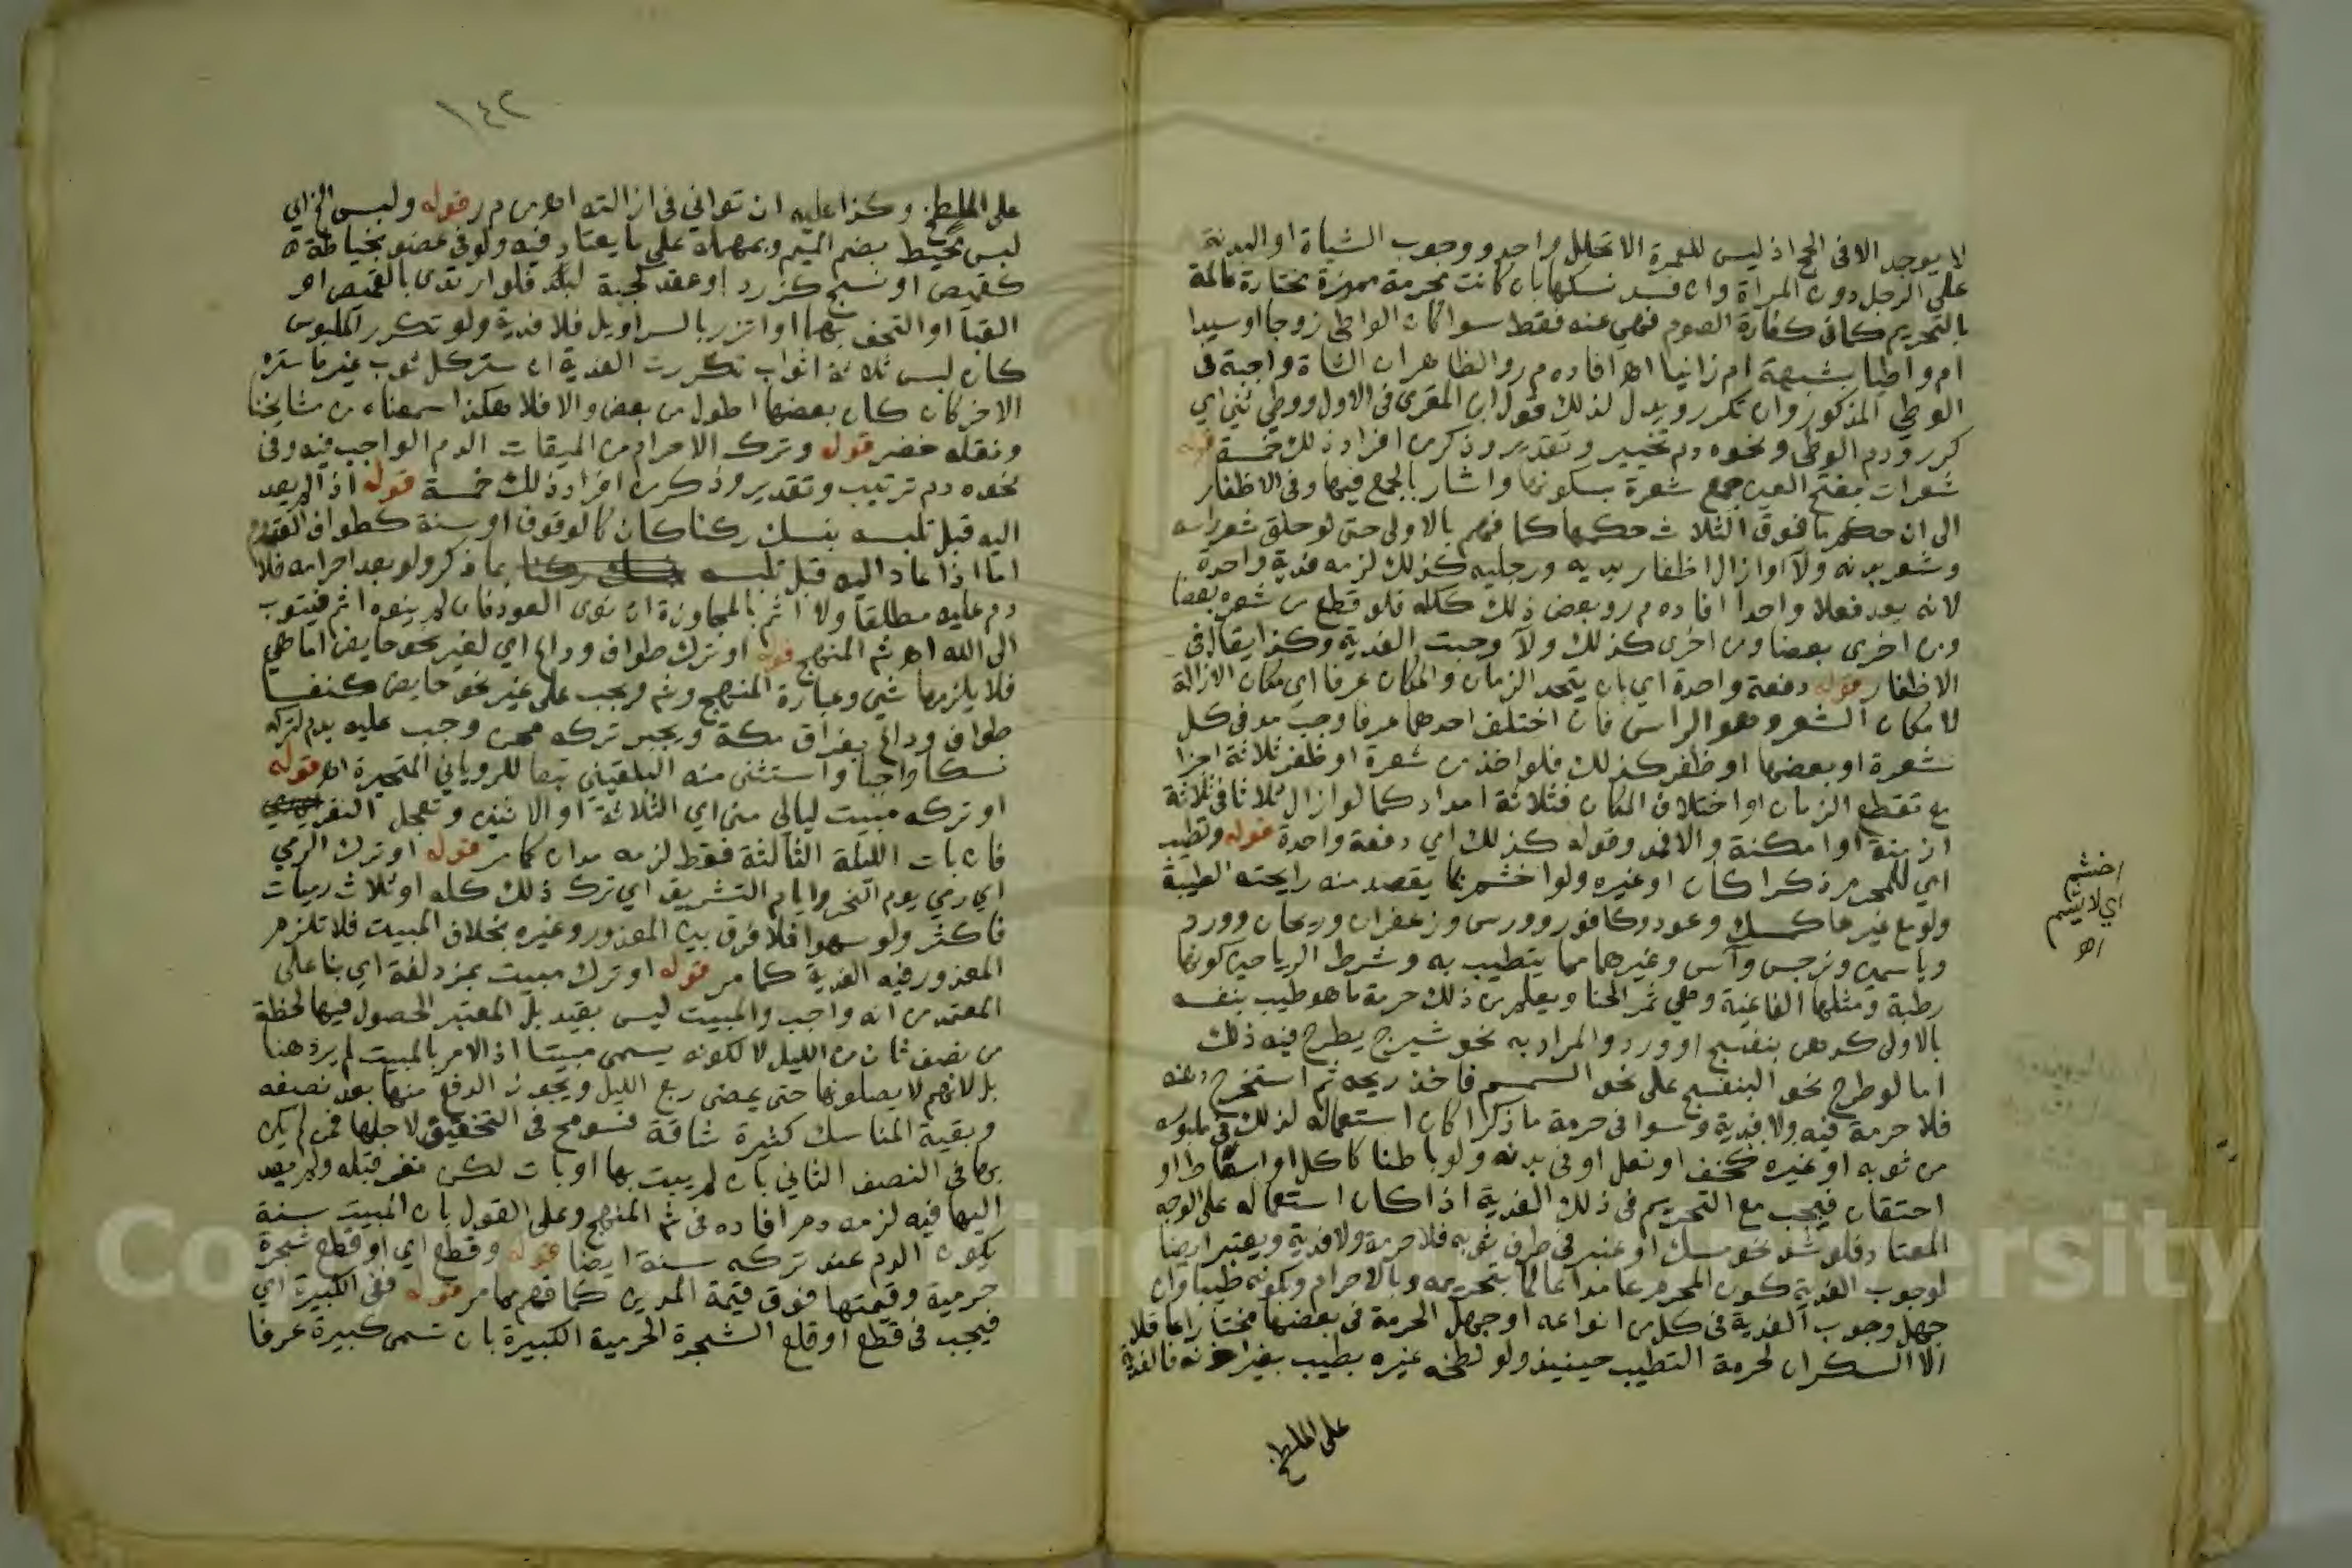 لا يوجد الا في الحج اذ ليس للعمرة الا تحلل واحد ووجوب الشاة او البدنة
على الرجل دون المراة وان فسد نسكها بان كانت محرمة مميزة مختارة عالمة
بالتحريم كما في كفارة الصوم فهي عنه فقط سوا كان الواطي زوجا او سيدا
ام واطيا بشبهة ام زانيا اه افاده م ر والظاهر ان الشاة واجبة في
الوطي المذكور وان تكرر ويدل لذلك قول ابن المقري في الاول ووطي ثني اي
كرر ودم الوطي ونحوه دم تخيير وتقدير وذكر من افراد ذلك خمسة قوله
شعرات بفتح العين جمع شعرة بسكونها واشار بالجمع فيها وفي الاظفار
الى ان حكم ما فوق الثلاث حكمها كما فهم بالاولى حتى لو حلق شعر راسه
وشعر بدنه ولآ او ازال اظفار يديه ورجليه كذلك لزمه فدية واحدة
لانه يعد فعلا واحدا افاده م ر وبعض ذلك ككله فلو قطع من شعره بعضا
ومن اخرى بعضا ومن اخرى كذلك ولآ وجبت الفدية وكذا يقال في
الاظفار قوله دفعة واحدة اي بان يتحد الزمان والمكان عرفا اي مكان الازالة
لا مكان الشعر وهو الراس فان اختلف احدهما عرفا وجب مد في كل
شعرة او بعضها او ظفر كذلك فلو اخذ من شعرة او ظفر ثلاثة اجزا
مع تقطع الزمان او اختلاف المكان فثلاثة امداد كما لو ازال ثلاثا في ثلاثة
ازمنة او امكنة والا فمد وقوله كذلك اي دفعة واحدة قوله وتطيب
اي للمحرم ذكرا كان او غيره ولو اخشم بما يقصد منه رايحته الطيبة
ولو مع غيرها كمسك وعود وكافور وورس وزعفران وريحان وورد
وياسمين ونرجس وآس وغيرهما مما يتطيب به وشرط الرياحين كونها
رطبة ومثلها الفاغية وهي ثمر الحنا ويعلم من ذلك حرمة ما هو طيب بنفسه
بالاولى كدهن بنفسج او ورد والمراد به نحو شيرج يطرح فيه ذلك
اما لو طرح نحو البنفسج على نحو السمسم فاخذ ريحه ثم استخرج دهنه
فلا حرمة فيه ولا فدية وسوا في حرمة ما ذكرا كان استعماله لذلك في ملبوسه
من ثوبه او غيره كخف او نعل او في بدنه ولو باطنا كاكل او اسعاط او
احتقان فيجب مع التحريم في ذلك الفدية اذا كان استعماله على الوجه
المعتاد فلو شد نحو مسك او عنبر في طرف ثوبه فلا حرمة ولا فدية ويعتبر ايضا
لوجوب الفدية كون المحرم عامدا عالما بتحريمه وبالاحرام وبكونه طيبا وان
جهل وجوب الفدية في كل من انواعه او جهل الحرمة في بعضها مختارا عاقلا
الا السكران لحرمة التطيب حينيذ ولو لطخه غيره بطيب بغير اذنه فالفدية
على الملطخ
اخشم
اي لا يشم
اه
١٤٢
على الملطخ وكذا عليه ان توانى في ازالته اه من م ر قوله ولبس الخ اي
لبس محيط بضم الميم وبمهملة على ما يعتاد فيه ولو في عضو بخياطة
كقميص او نسج كزرد او عقد كجبة لبد فلو ارتدى بالقميص او
القبآ او التحف بهما او اتزر بالسراويل فلا فدية ولو تكرر الملبوس
كان لبس ثلاثة اثواب تكررت الفدية ان ستر كل ثوب غير ما ستره
الاخر كان كان بعضها اطول من بعض والا فلا هكذا سمعناه من مشايخنا
ونقله خضر قوله وترك الاحرام من الميقات الدم الواجب فيه وفي
نحوه دم ترتيب وتقدير وذكر من افراد ذلك خمسة قوله اذا لم يعد
اليه قبل تلبسه بنسك ركنا كان كالوقوف او سنة كطواف القدوم
اما اذا عاد اليه قبل تلبسه بما ذكر ولو بعد احرامه فلا
دم عليه مطلقا ولا اثم بالمجاوزة ان نوى العود فان لم ينوه اثم فيتوب
الى الله اه شم المنهج قوله او ترك طواف وداع اي لغير نحو حايض اما هي
فلا يلزمها شي وعبارة المنهج وشم ويجب على غير نحو حايض كنفسا
طواف وداع بفراق مكة ويجبر تركه ممن وجب عليه بدم لتركه
نسكا واجبا واستثنى منه البلقيني تبعا للروياني المتحيرة اه قوله
او تركه مبيت ليالي منى اي الثلاثة او الاثنين وتعجل النفر
فان بات الليلة الثالثة فقط لزمه مدان كما مر قوله او ترك الرمي
اي رمي يوم النحر وايام التشريق اي ترك ذلك كله او ثلاث رميات
فاكثر ولو سهوا فلا فرق بين المعذور وغيره بخلاف المبيت فلا تلزم
المعذور فيه الفدية كما مر قوله او ترك مبيت بمزدلفة اي بنا على
المعتمد من انه واجب والمبيت ليس بقيد بل المعتبر الحصول فيها لحظة
من نصف ثان من الليل لا لكونه يسمى مبيتا اذ الامر بالمبيت لم يرد هنا
بل لانهم لا يصلونها حتى يمضي ربع الليل ويجوز الدفع منها بعد نصفه
وبقية المناسك كثيرة شاقة فسومح في التخفيف لاجلها فمن لم يكن
بها في النصف الثاني بان لم يبت بها او بات لكن نفر قبله ولم يعد
اليها فيه لزمه دم افاده في شم المنهج وعلى القول بان المبيت سنة
يكون الدم عند تركه سنة ايضا قوله وقطع اي او قطع شجرة
حرمية وقيمتها فوق قيمة المدين كما فهم مما مر قوله ففي الكبيرة اي
فيجب في قطع او قلع الشجرة الحرمية الكبيرة بان تسمى كبيرة عرفا